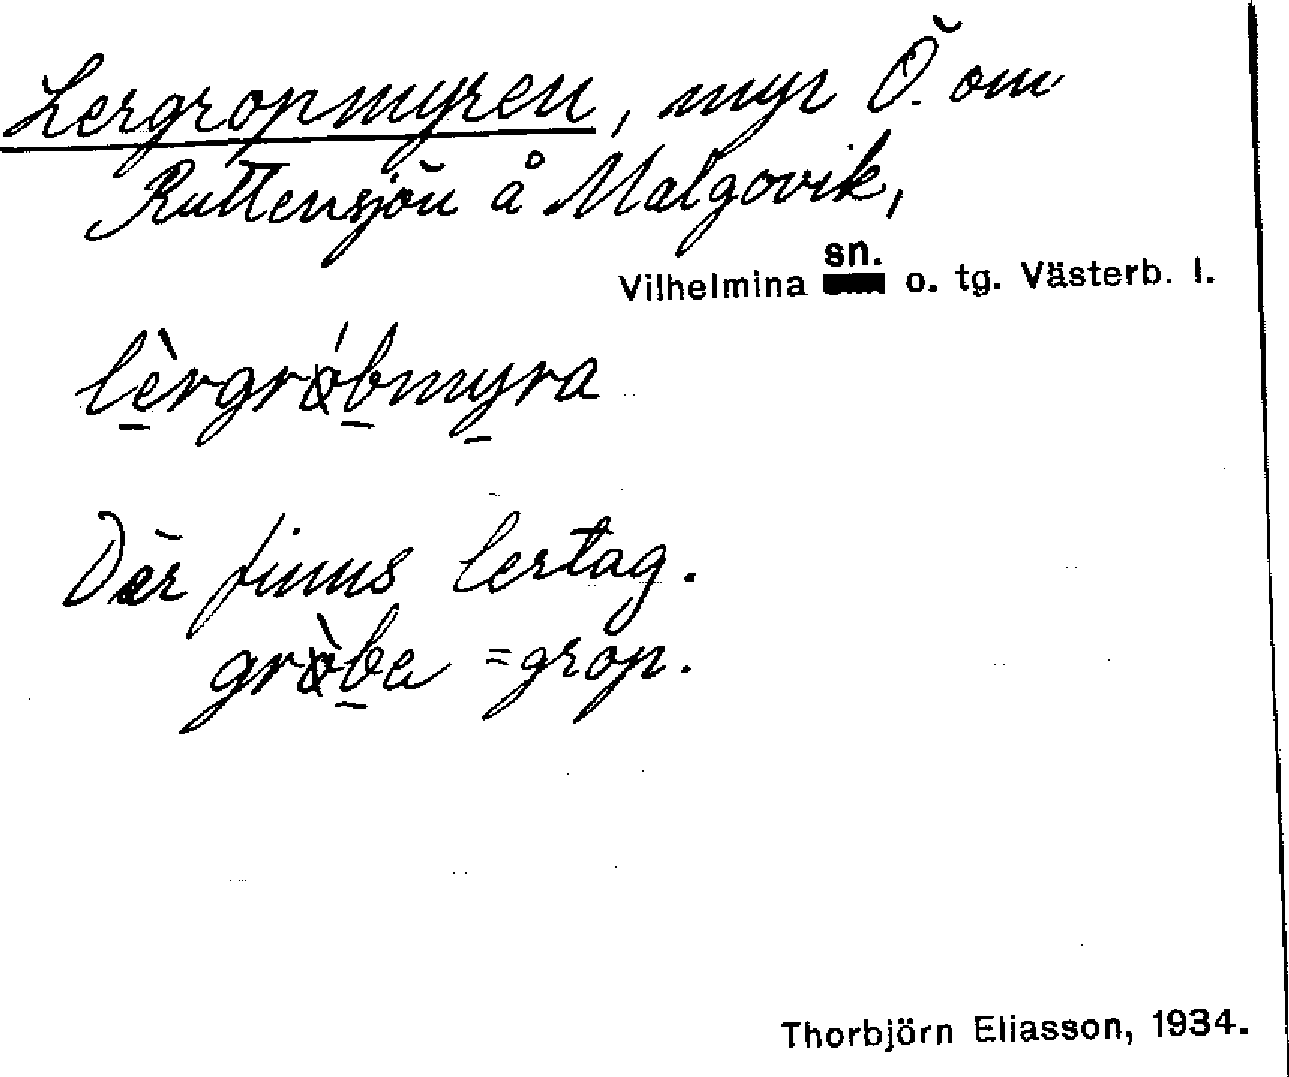 Lergropmyren, myr Ö. om
Ruttensjön å Malgovik,
sn.
Vilhelmina o. tg. Västerb. l.
lèrgróbmyra
Där finns lertag.
gròba = grop.
Thorbjörn Eliasson, 1934.